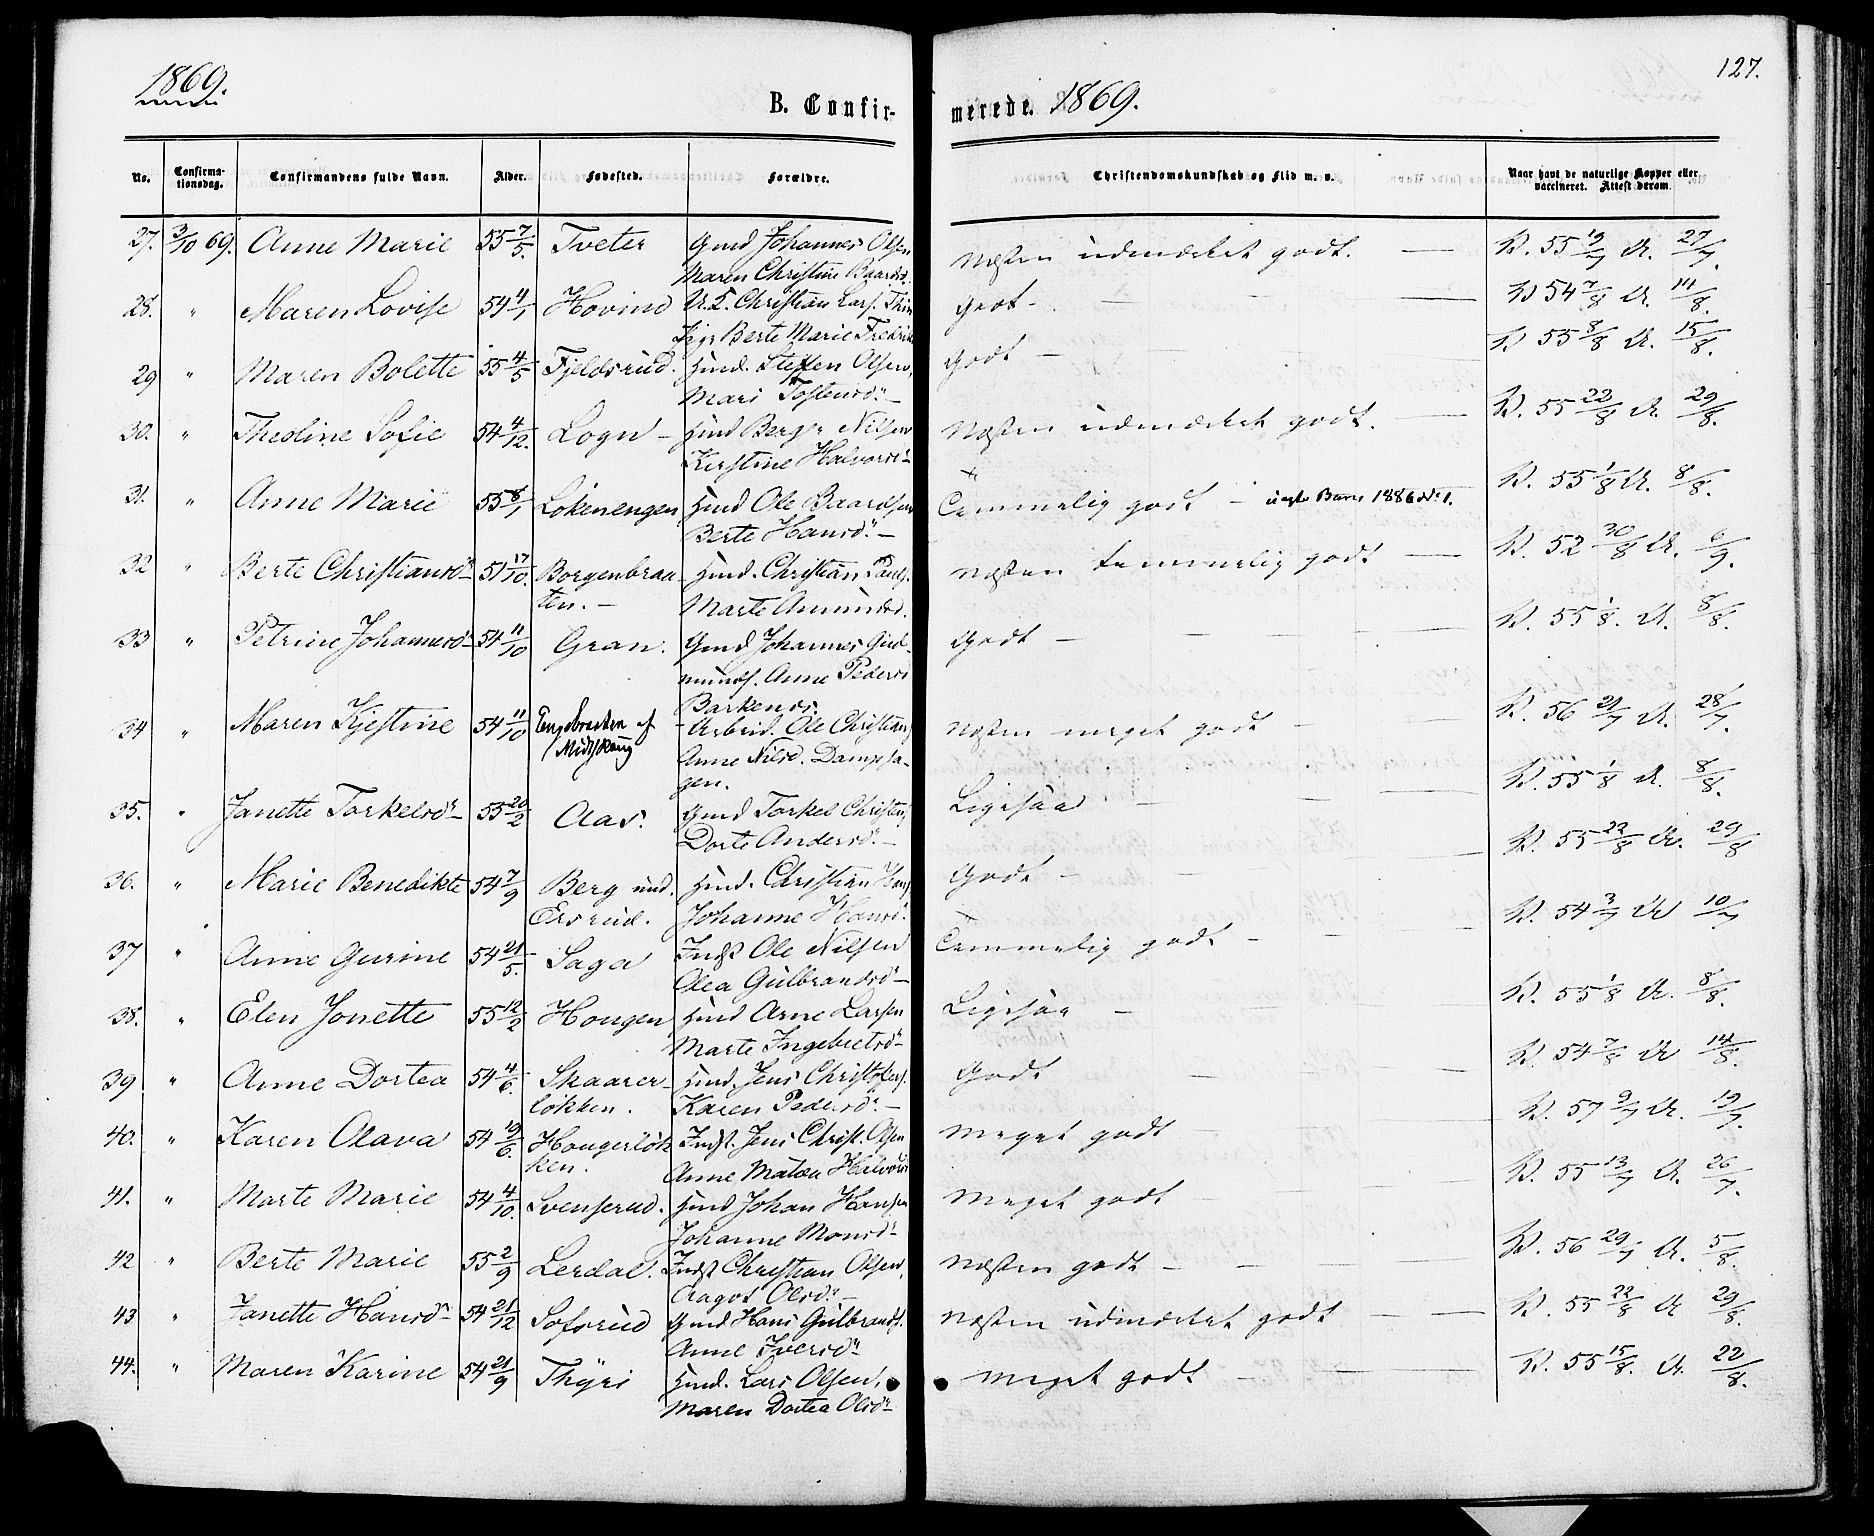 1869.
127.
B. Confir-
merede. 1869.
No. Confirma-tionsdag. Confirmandens fulde Navn. Alder. Fødested. Forældre. Christendomskundskab og Flid m. v. Naar havt de naturlige Kopper eller vaccineret. Attest derom.
27. 3/10 69. Anne Marie 55 7/5. Tveter Gmd Johannes Olsen Næsten udmærket godt. V. 55 19/7 A. 27/7.
Maren Christine Baardsd.
28. " Maren Lovise 54 4/1 Hovind U. F. Christian Lars. Godt - V 54 7/8 A. 14/8.
Pige Berte Marie Fredrik
29 " Maren Bolette 55 4/5 Fjeldsrud. Huusd. Steffen Olsen, Godt - V 55 8/8 A. 15/8.
Mari Tostensdr. -
30. " Theoline Sofie 54 4/12. Logn - Huusd Berger Nilsen Næsten udmærket godt. V. 55 22/8 A. 29/8.
Kirstine Halvorsdr -
31. " Anne Marie 55 8/1 Lökenengen Huusd Ole Baardsen Temmelig godt - uegte Barn 1886 No 1. V. 55 1/8 A. 8/8.
Berte Hansdr -
32 " Berte Christiansdr - 51 17/10. Borgenbraa- Huusd. Christian Pauls. Næsten temmelig godt V. 52 30/8 A. 6/9.
ten. - Marte Amundsd.
33 " Petrine Johannesdr - 54 11/10 Gran. Gmd Johannes Gud- Godt - V. 55 1/8. A. 8/8.
munds. Anne Pedersd
Barkenes.
34 " Maren Kjestine 54 11/10 Engebraaten af Arbeid. Ole Christians Næsten meget godt V. 56 21/7 A. 28/7.
Midtskoug Anne Nilsd. Dampsa-
gen.
35. " Janette Torkelsdr - 55 20/2 Aas. Gmd Torkel Christens. Ligesaa V. 55 1/8 A. 8/8.
Dorte Andersdr. -
36. " Marie Benedikte 54 7/9 Berg und. Huusd. Christian Hans Godt - V. 55 22/8 A. 29/8
Ersrud. Johanne Hansdr.
37 " Anne Gurine 54 21/5. Saga Indst Ole Nilsen Temmelig godt - V. 54 3/7 A 10/7
Olea Gulbrandsdr -
38. " Elen Jonette 55 12/2 Hougen Huusd Arne Larsen Ligesaa - V. 55 1/8 A. 8/8.
Marte Ingebretsdr -
39 " Anne Dortea 54 4/6. Skaarer- Huusd. Jens Christofers. Godt V. 54 7/8 A 14/8.
lökken. Karen Pedersdr. -
40. " Karen Olava 54 19/6. Hougerlök- Indst. Jens Christ. Olsen Meget godt - V. 57 9/7 A. 19/7.
ken. Anne Matea Halvorsd
41. " Marte Marie 54 4/10. Svenserud. Huusd Johan Hansen Meget godt V. 55 13/7 A. 26/7.
Johanne Monsdr -
42 " Berte Marie 55 2/9 Lerdal. Indst Christian Olsen, Næsten godt - V. 56 29/7 A. 5/8.
Aagot Olsdr -
43 " Janette Hansdr - 54 21/12 Sofsrud Gmd Hans Gulbrands. Næsten udmærket godt V. 55 22/8 A 29/8.
Anne Iversdr
44. " Maren Karine 54 21/9 Thyri Huusd. Lars Olsen, Meget godt - V. 55 15/8. A. 22/8.
Maren Dortea Olsdr -